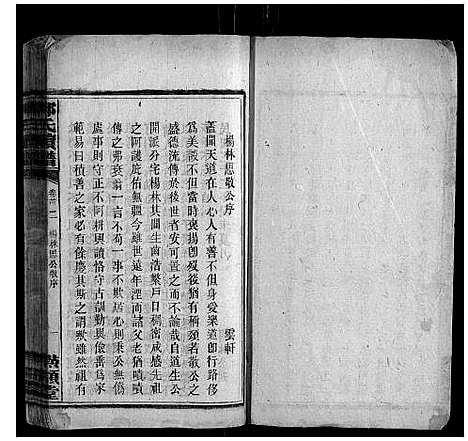 楊林思敬公序
雲軒
蓋聞天道在人心人有善不但本身爱樂道即行路侈
爲美談不但當時褒揚即歿後猶有稱頌若敬公之
盛德流傳於後世者安可置之而不論哉自道生公
開派分宅楊林其間生齒浩繁戶口稠密咸感先祖
之阿護庇佑無疆今雖世遠年湮而諸父老猶嘖嘖
傳之弗衰謂一言不苟一事不欺居心則秉公無僞
處事則守正不阿耕與讀恪守古訓勤與儉垂爲家
範易曰積善之家必有餘慶其斯之謂歟雖然祖有
卷首二
楊林思敬公序